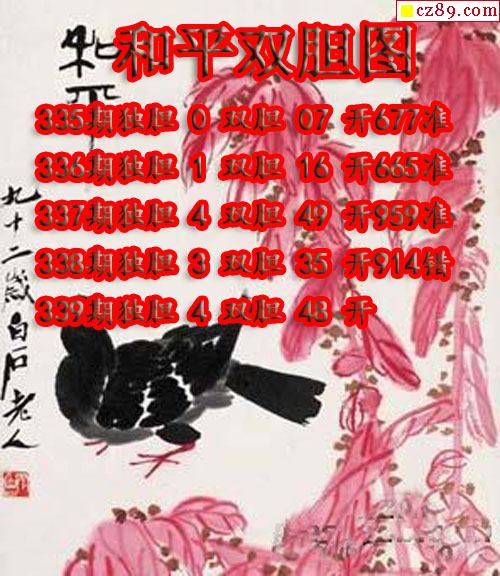 cz89.com
和平双胆图
和平
335期独胆 0 双胆 07 开677准
336期独胆 1 双胆 16 开665准
337期独胆 4 双胆 49 开959准
338期独胆 3 双胆 35 开914错
339期独胆 4 双胆 48 开
九十二岁白石老人